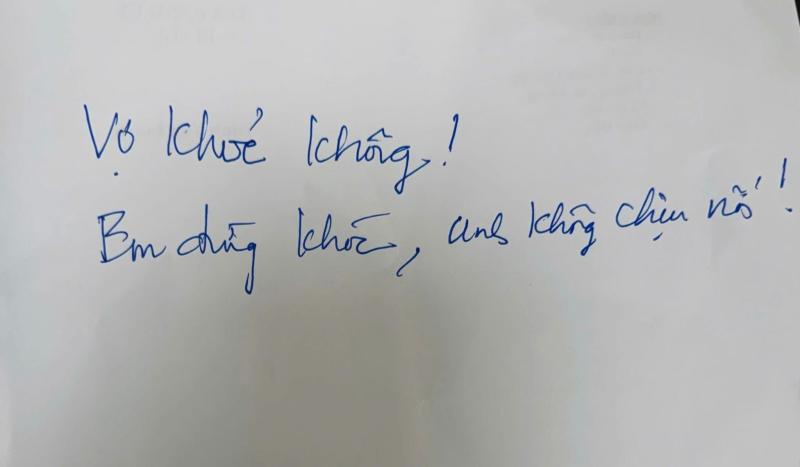 Vợ khoẻ không!
Em đừng khóc, anh không chịu nổi!